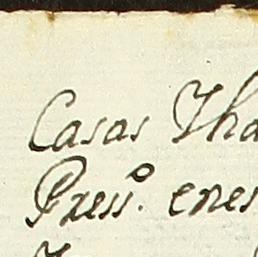 Casas Tha
Press.º enes